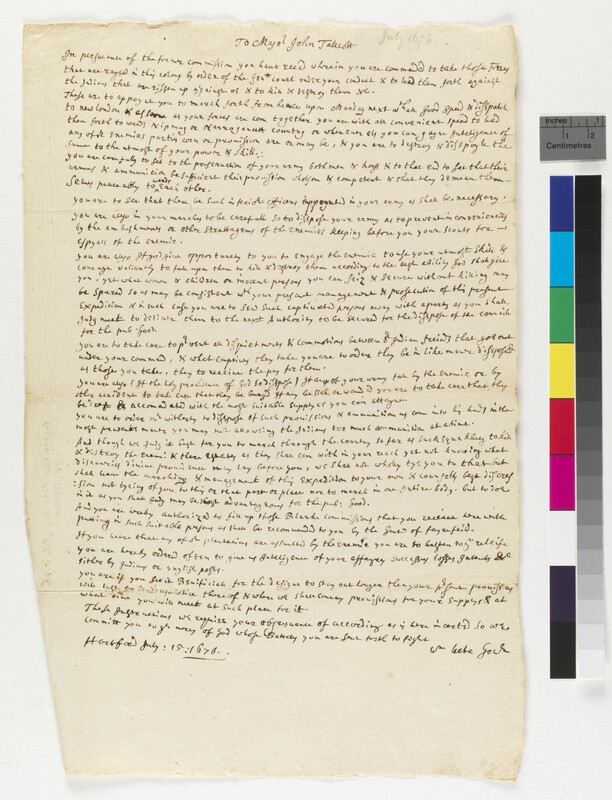 July 1676
To Major John Talcott
In persuance of the former commission you have rec'd wherein you are commanded to take those Forces
that are raysed in this colony by order of the Gen'll court under your conduct & to lead them forth against
the Indians that are rissen up against us & to kill & destroy them &c.
These are to appoynt you to march forth from hence upon Monday next with all good speed & dispatch
to new london & as soone as your forces are com together you are with all convenient speed to lead
them forth towards country or where ever els you can gayn Intelligence of
any of the Enemies parties corn or provission are or may be, & you are to destroy & disspoyle the
same to the utmost of your power & skill.
you are carefully to see to the preservation of your army both men & horss & to that end to see that their
armes & ammunition be sufficient their provission wholsom & competent & that they demean them-
selves peaceably towards each other.
you are to see that there be such inferiour officers appoynted in your army as shall be necessary.
you are allso in your marches to be carefull so to dispose your army as to prevent inconveniencies
by the ambushments or other strattagems of the enemies keeping before you your scouts for
espyall of the enemie.
you are allso If god give opportunity to you to engage the enemie to use your utmost skill &
courage valiantly to fall upon them to kill & destroy them according to the best ability god shall give
you yet what women & children or inocent persons you can seiz & secure without killing may
be spared so as may be consistent with your present management & prosecution of this present
Expedition & in such case you are to send such captivated persons away with a party as you shall
Judg meet to deliver them to the next Authority to be secured for the dispose of the councill
for the pub: Good.
you are to take care to prevent all disquietments & commotions between the Indian freinds that goe out
under your command, & what captives they take you are to order they be in like manner disposed
as those you take, they to receive the pay for them.
you are allso If the holy providence of God so dispose If any of your army fall by the enemie or by
other accident to take care that they be buried If any be sick or wounded you are to take care that they
be accomodated with the most suitable supply as you can attayne.
you are to order mr witherly to dispose of such provissions & ammunition as com into his hands in the
most prudent maner you may not allowing the Indians too much ammunition at a time.
And though we Judg it best for you to march through the country so far as such to kill
& destroy the enemie & there estates, as they shall com with in your reach yet not knowing what
discoveries divine providence may lay before you, we shall not wholy tye you to that but
shall leave the marching & management of this Expedition to your own & councills best discres-
sion not tyeing of you to this or that part or place nor to march in an entire body. but to doe
in it as you shall Judg may be most advantageous for the pub: Good.
And you are hereby authorized to fill up those Blanke commissions that you receive here with
putting in such suitable persons as shall be recommended to you by the of fayrfeild.
If you hear that any of the plantations are assaulted by the enemie you are to hasten to their releife
you are hereby ordered often to give us Intelligence of your affayres successes losses Intents &c
either by Indians or english posts.
you are if you see it Beneficiall for the designe to stay out longer than your present provissions
will last to send us notice there of & where we shall convey provissions for your supply & at
what time you will meet at such place for it.
These Instructions we require your observance of according as is here inserted So we
committ you to the mercy of God whose Battells you are sent forth to fight
Hartford July: 15: 1676.
Wm Leete Govr
Inches
1
2
Centimetres